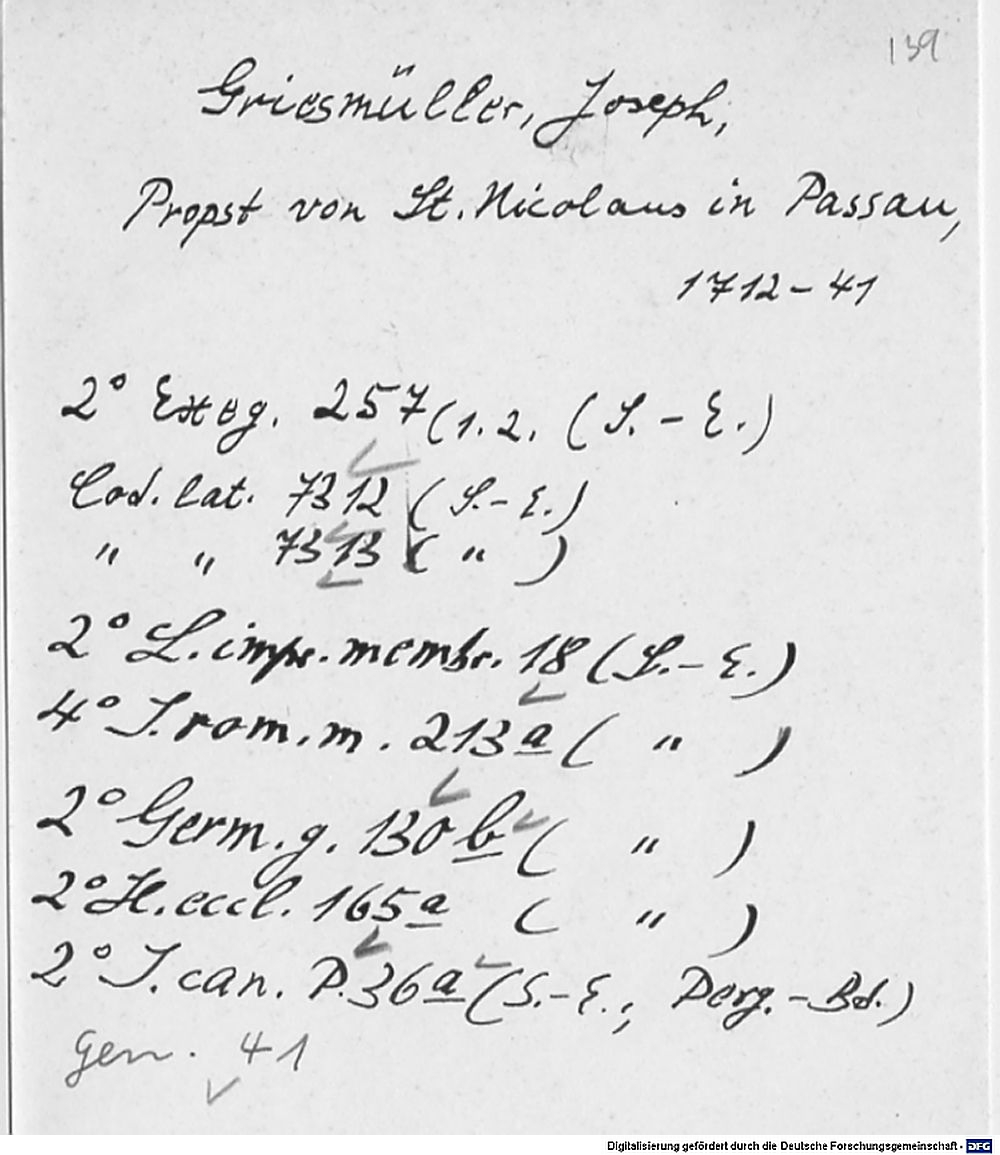 139
Griesmüller, Joseph,
Propst von St. Nicolaus in Passau,
1712-41
2° Exeg. 257(1.2. (S.-E.)
Cod. lat. 7312 (S.-E.)
" " 7313 ( " )
2° L. impr. membr. 18 (S.-E.)
4° J. rom. m. 213a ( " )
2° Germ. g. 130b ( " )
2° H. eccl. 165a ( " )
2° J. can. P. 36a (S.-E., Perg.-Bd.)
Gen. 41
Digitalisierung gefördert durch die Deutsche Forschungsgemeinschaft - DFG